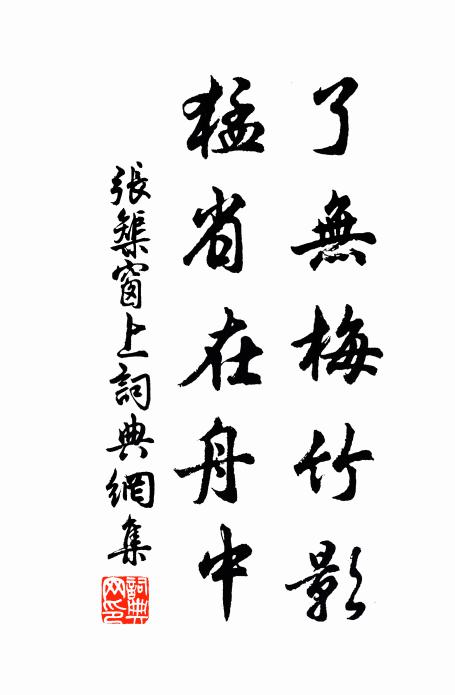 了無梅竹影
猛省在舟中
張榘窗上詞典網集
詞典
网印